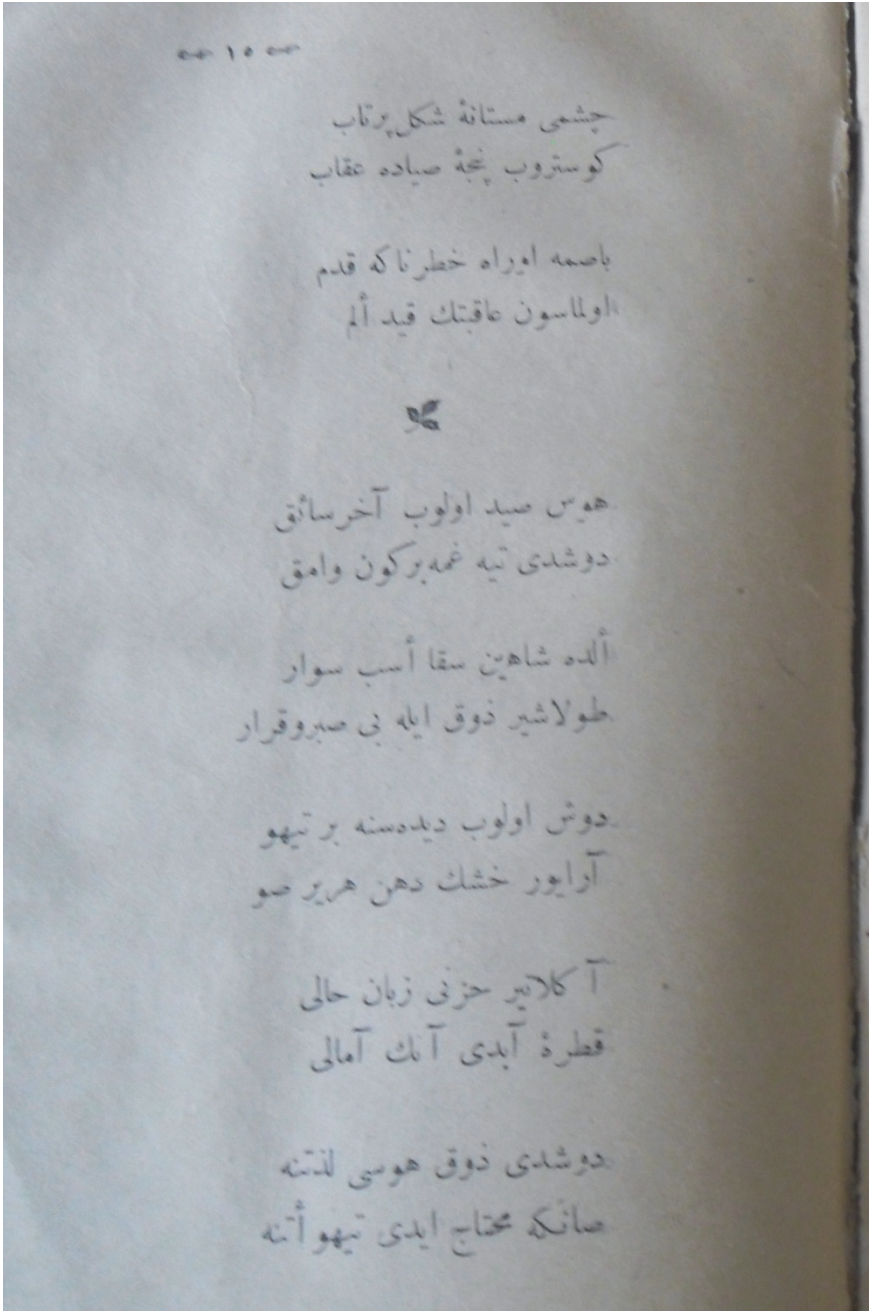 ١٥
چشمی مستانهٔ شکل پرتاب
کوستروب پنجهٔ صیاده عقاب
باصمه اوراه خطرناکه قدم
اولماسون عاقبتك قید ألم
هوس صید اولوب آخر سائق
دوشدی تیه غمه برکون وامق
ألده شاهین سقا أسب سوار
طولاشیر ذوق ایله بی صبروقرار
دوش اولوب دیده‌سنه بر تیهو
آرایور خشك دهن هریر صو
آکلاتیر حزنی زبان حالی
قطرهٔ آبدی آنك آمالی
دوشدی ذوق هوسی لذتنه
صانکه محتاج ایدی تیهو أتنه